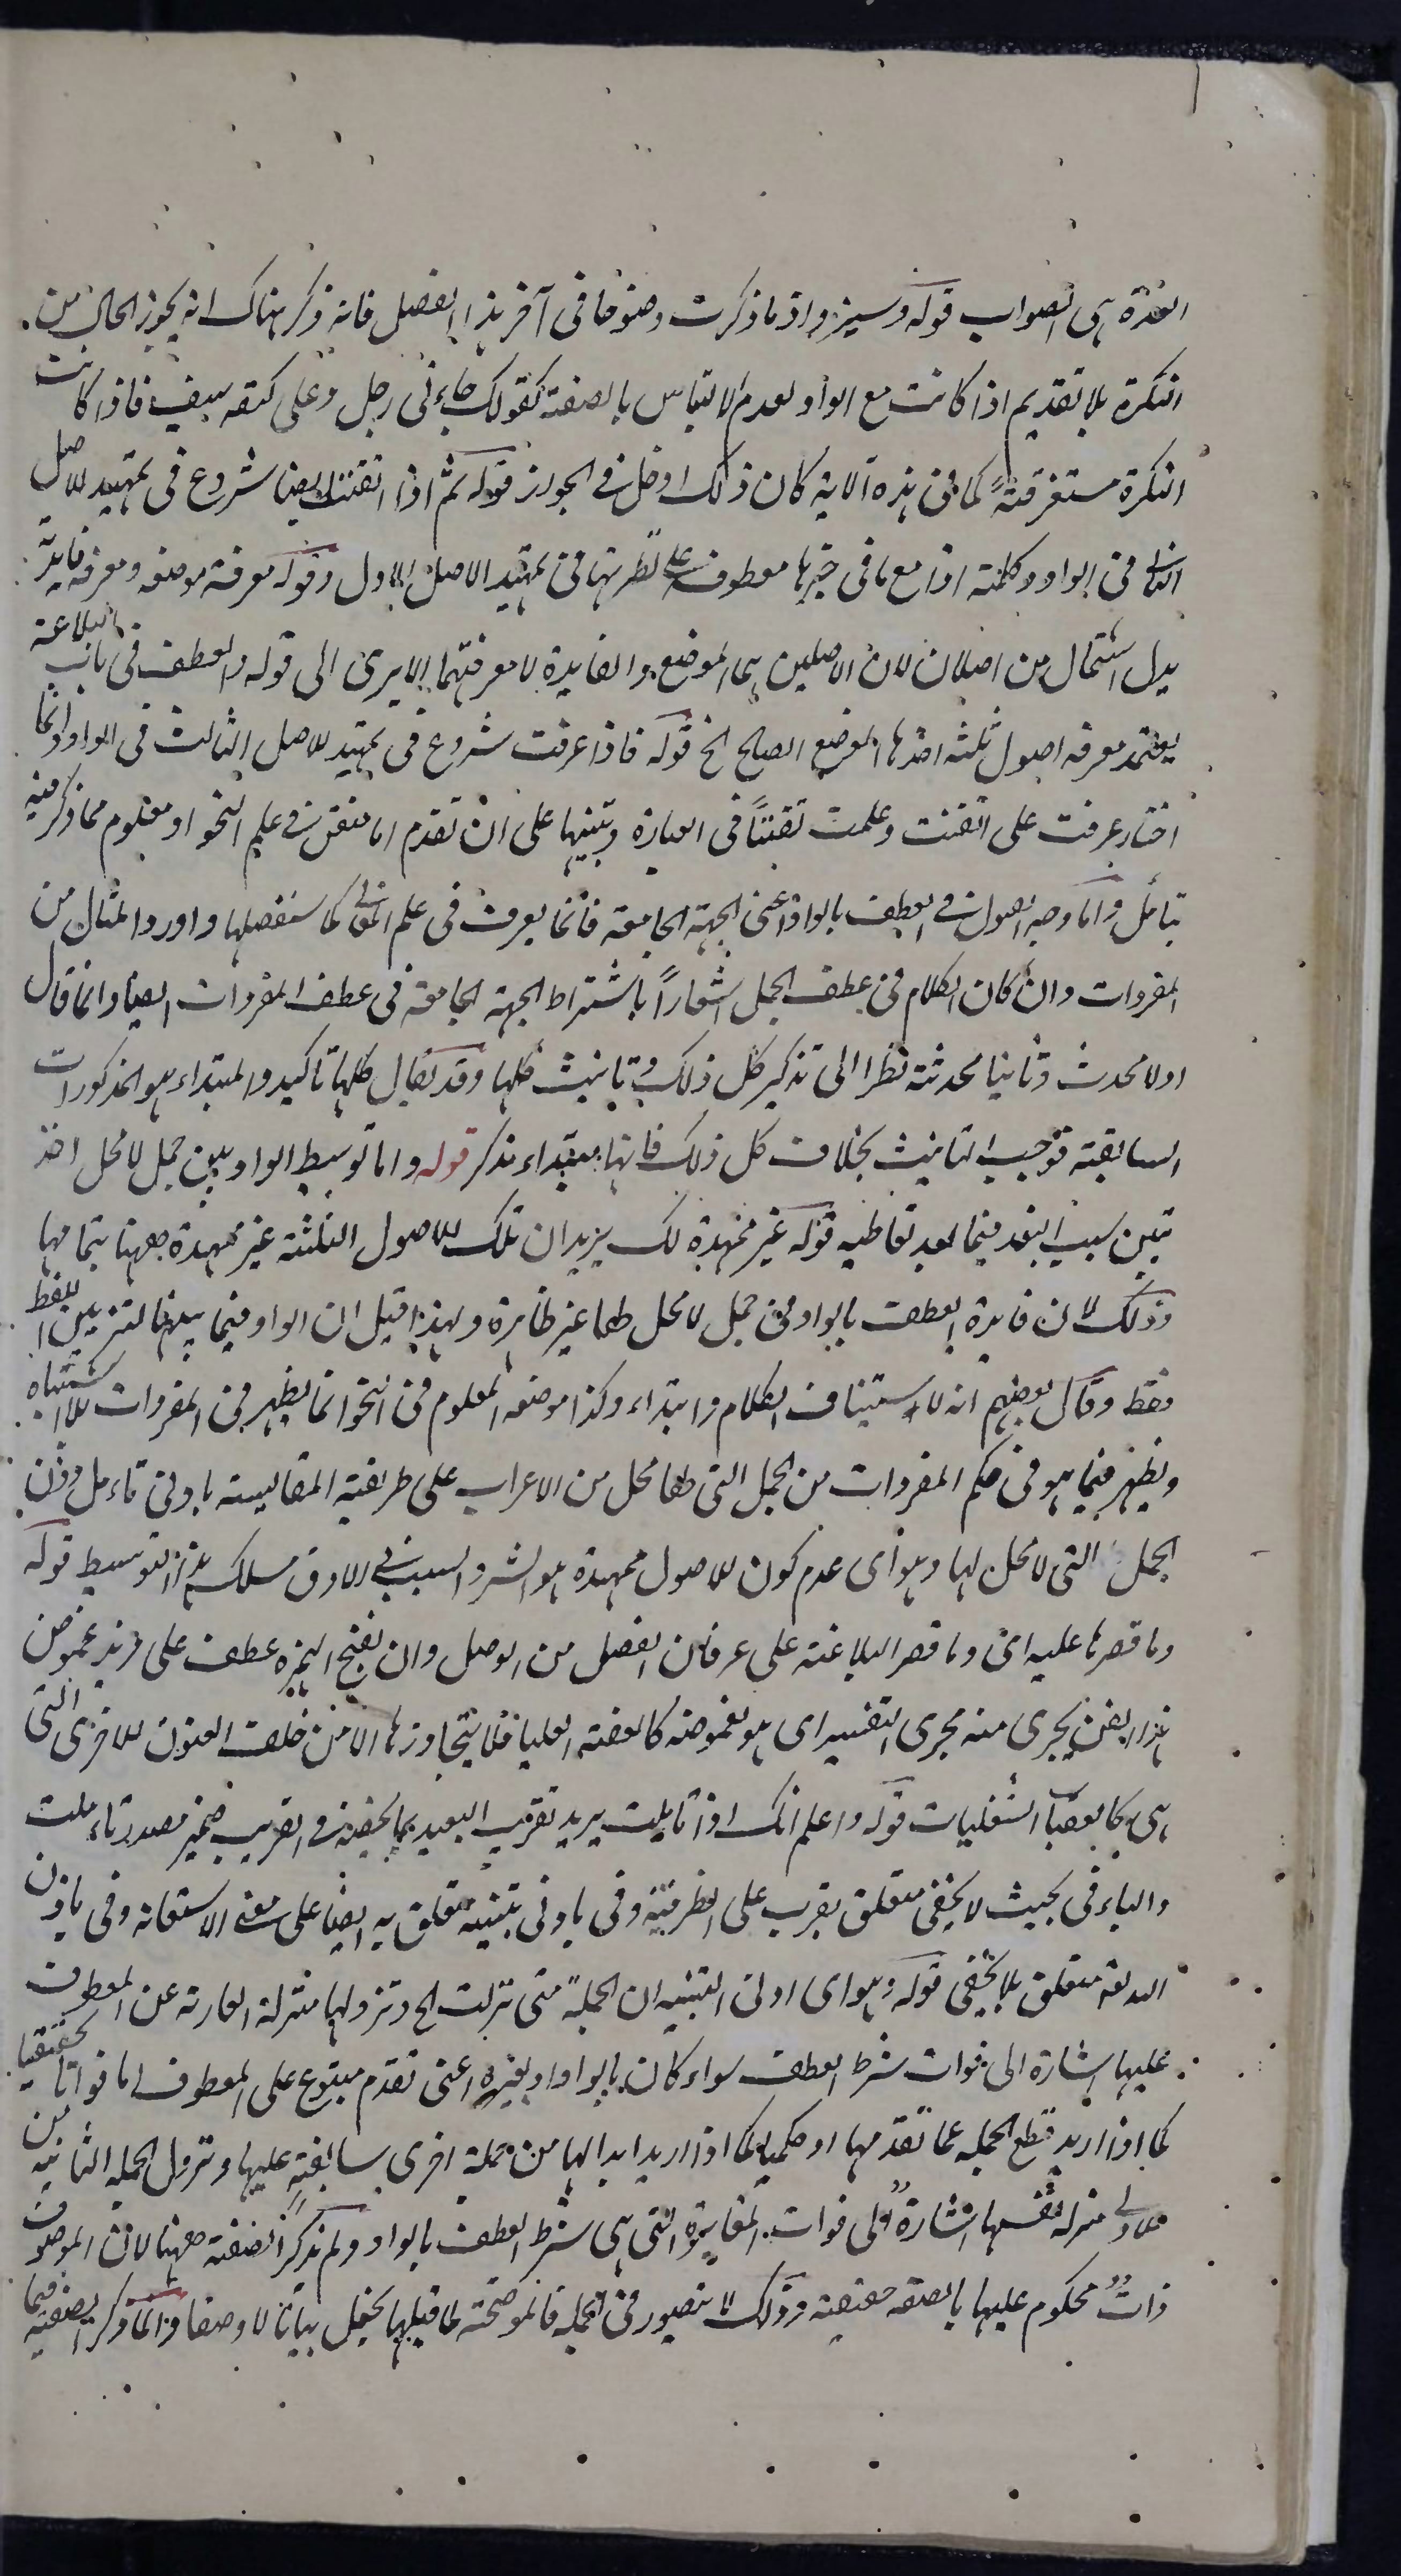 العذرة هى الصواب قوله وسيزداد ما ذكرت وضوحا فى آخر هذا الفصل فانه ذكر هناك انه يجوز الحال من
النكرة بلا تقديم اذا كانت مع الواو لعدم الالتباس بالصفة كقولك جاءنى رجل وعلى كتفه سيف فاذا كانت
النكرة مستغرقةً كما فى هذه الآية كان ذلك ادخل فى الجواز قوله ثم اذا اتقنت ايضا شروع فى تمهيد للاصل
الثانى فى الواو وكلمة اذا مع ما فى حيزها معطوف على نظيرتها فى تمهيد الاصل الاول وقوله معرفة موضعه ومعرفة فايدته
بدل اشتمال من اصلان لان الاصلين هما الموضع والفايدة لا معرفتهما الا يرى الى قوله والعطف فى باب البلاغة
يعتمد معرفة اصول ثلثة احدها الموضع الصالح الخ قوله فاذا عرفت شروع فى تمهيد للاصل الثالث فى الواو وانما
اختار عرفت على اتقنت وعلمت تفننًا فى العبارة وتنبيها على ان تقدم اما متقن فى علم النحو او معلوم مما ذكر فيه
بتأمل واما وجه القبول فى العطف بالواو اعنى الجهة الجامعة فانما يعرف فى علم المعانى كما سنفصلها واورد المثال من
المفردات وان كان الكلام فى عطف الجمل اشعاراً باشتراط الجهة الجامعة فى عطف المفردات ايضا وانما قال
اولا محدث وثانيا محدثة نظرا الى تذكير كل ذلك وتانيث كلها وقد يقال كلها تاكيد والمبتداء هو المذكورات
السابقة فوجب التانيث بخلاف كل ذلك فانها مبتداء مذكر قوله واما توسيط الواو بين جمل لا محل اخذ
تبين سبب البعد فيما بعد تعاطيه قوله غير ممهدة لك يريد ان تلك للاصول الثلثة غير ممهدة ههنا بتمامها
وذلك لان فايدة العطف بالواو فى جمل لا محل لها غير ظاهرة ولهذا قيل ان الواو فيما بينهما لتزيين اللفظ
فقط وقال بعضهم انه للاستيناف الكلام وابتداء وكذا موضعه المعلوم فى النحو انما يظهر فى المفردات للاشتباه
ويظهر فيما هو فى حكم المفردات من الجمل التى لها محل من الاعراب على طريقة المقايسة بادنى تامل دون
الجمل التى لا محل لها وهو اى عدم كون للاصول ممهدة هو السر والسبب فى ان دق مسلك هذا التوسيط قوله
وما قصرها عليه اى وما قصر البلاغة على عرفان الفصل من الوصل وان بفتح الهمزة عطف على مزيد غموض
هذا الفن يجرى منه مجرى التفسير اى هو لغموضه كالعقبة العليا فلا يتجاوزها الا من خلف العيون للاخرى التى
هى كالعقبات السفليات قوله واعلم انك اذا تاملت يريد تقريب البعيد بما لخصنه فى القريب ضمير مصدر تاملت
والباء فى بحيث لا يخفى متعلق بقرب على الظرفية وفى بادنى تنبيه متعلق به ايضاً على معنى الاستعانة وفى باذن
الله متعلق بلا يخفى قوله وهو اى ادنى التنبيه ان الجملة متى نزلت الخ وتنزولها منزلة العارية عن المعطوف
عليها اشارة الى فوات شرط العطف سواء كان بالواو او بغيره اعنى تقدم متبوع على المعطوف اما فواتا تحقيقيا
كما اذا اريد قطع الجملة عما تقدمها او حكميا كما اذا اريد ابدالها من جملة اخرى سابقةٍ عليها وتنزول الجملة الثانية من
الاولى منزلة نفسها اشارةً الى فوات المغايرة التى هى شرط العطف بالواو ولم يذكر الصفة ههنا لان الموصوف
ذاتٌ محكوم عليها بالصفة حقيقية وذلك لا يتصور فى الجملة فالموضحة لما قبلها يجعل بيانا لا وصفا وانما ذكر الصفة فيما